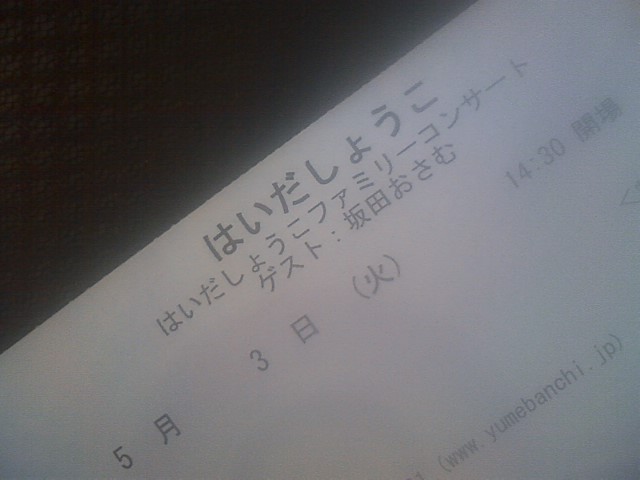 はいだしょうこ
はいだしょうこファミリーコンサート
ゲスト：坂田おさむ
5 月 3 日 (火) 14:30 開場
(www.yumebanchi.jp)